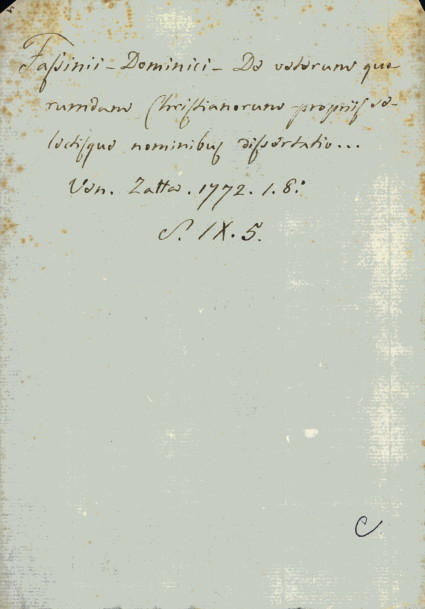 Fassinii - Dominici - De veterum quo
rumdam Christianorum propriis se-
lectisque nominibus dissertatio...
Ven. Zatta. 1772. 1. 8.°
S. IX. 5.
C